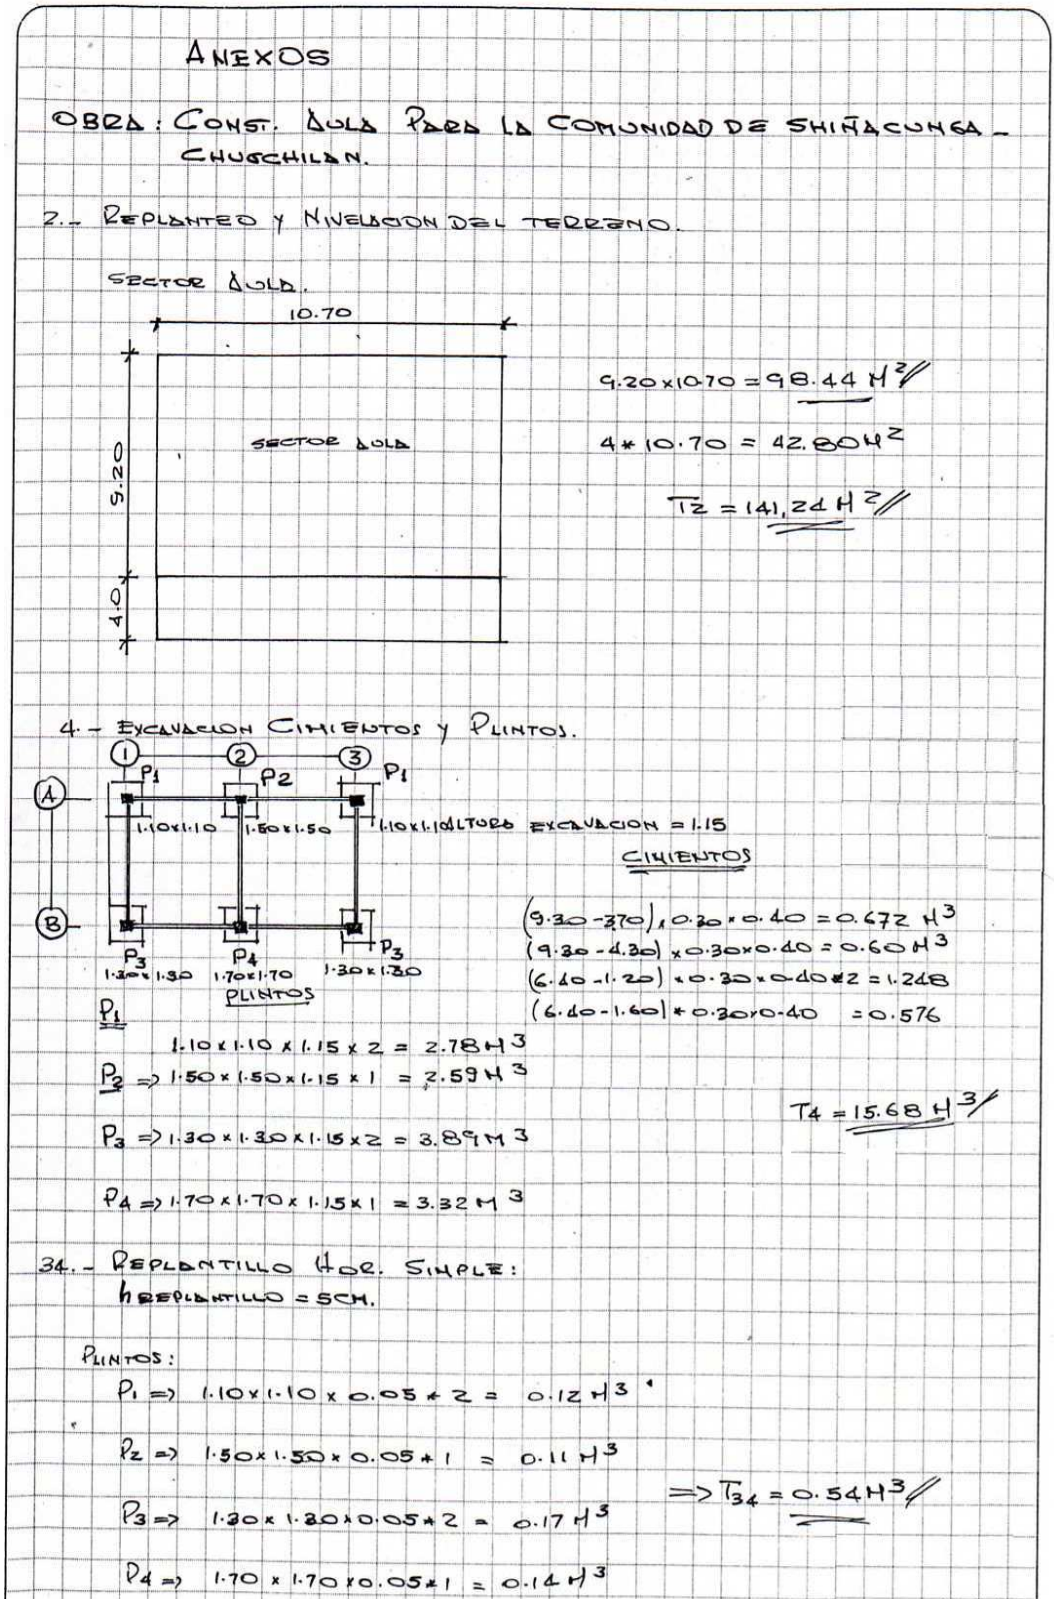 ANEXOS
OBRA: CONST. AULA PARA LA COMUNIDAD DE SHIÑACUNGA -
CHUGCHILAN.
2.- REPLANTEO Y NIVELACION DEL TERRENO.
SECTOR AULA.
10.70
9.20
SECTOR AULA
4.0
9.20x10.70 = 98.44 M²
4*10.70 = 42.80M²
T2 = 141,24 M²
4.- EXCAVACION CIMIENTOS Y PLINTOS.
1 2 3
P1 P2 P1
A
1.10x1.10 1.50x1.50 1.10x1.10 ALTURA EXCAVACION = 1.15
B
P3 P4 P3
1.30x1.30 1.70x1.70 1.30x1.30
CIMIENTOS
(9.30-3.70)x0.30x0.40 = 0.672 M³
(9.30-4.30)x0.30x0.40 = 0.60M³
(6.40-1.20)*0.30x0.40*2 = 1.248
(6.40-1.60)*0.30x0.40 = 0.576
PLINTOS
P1
1.10x1.10x1.15x2 = 2.78M³
P2 => 1.50x1.50x1.15x1 = 2.59M³
T4 = 15.68 M³
P3 => 1.30x1.30x1.15x2 = 3.89M³
P4 => 1.70x1.70x1.15x1 = 3.32M³
34.- REPLANTILLO HOR. SIMPLE:
h REPLANTILLO = 5CM.
PLINTOS:
P1 => 1.10x1.10x0.05*2 = 0.12M³
P2 => 1.50x1.50x0.05*1 = 0.11M³
=> T34 = 0.54M³
P3 => 1.30x1.30x0.05*2 = 0.17M³
P4 => 1.70x1.70x0.05*1 = 0.14M³